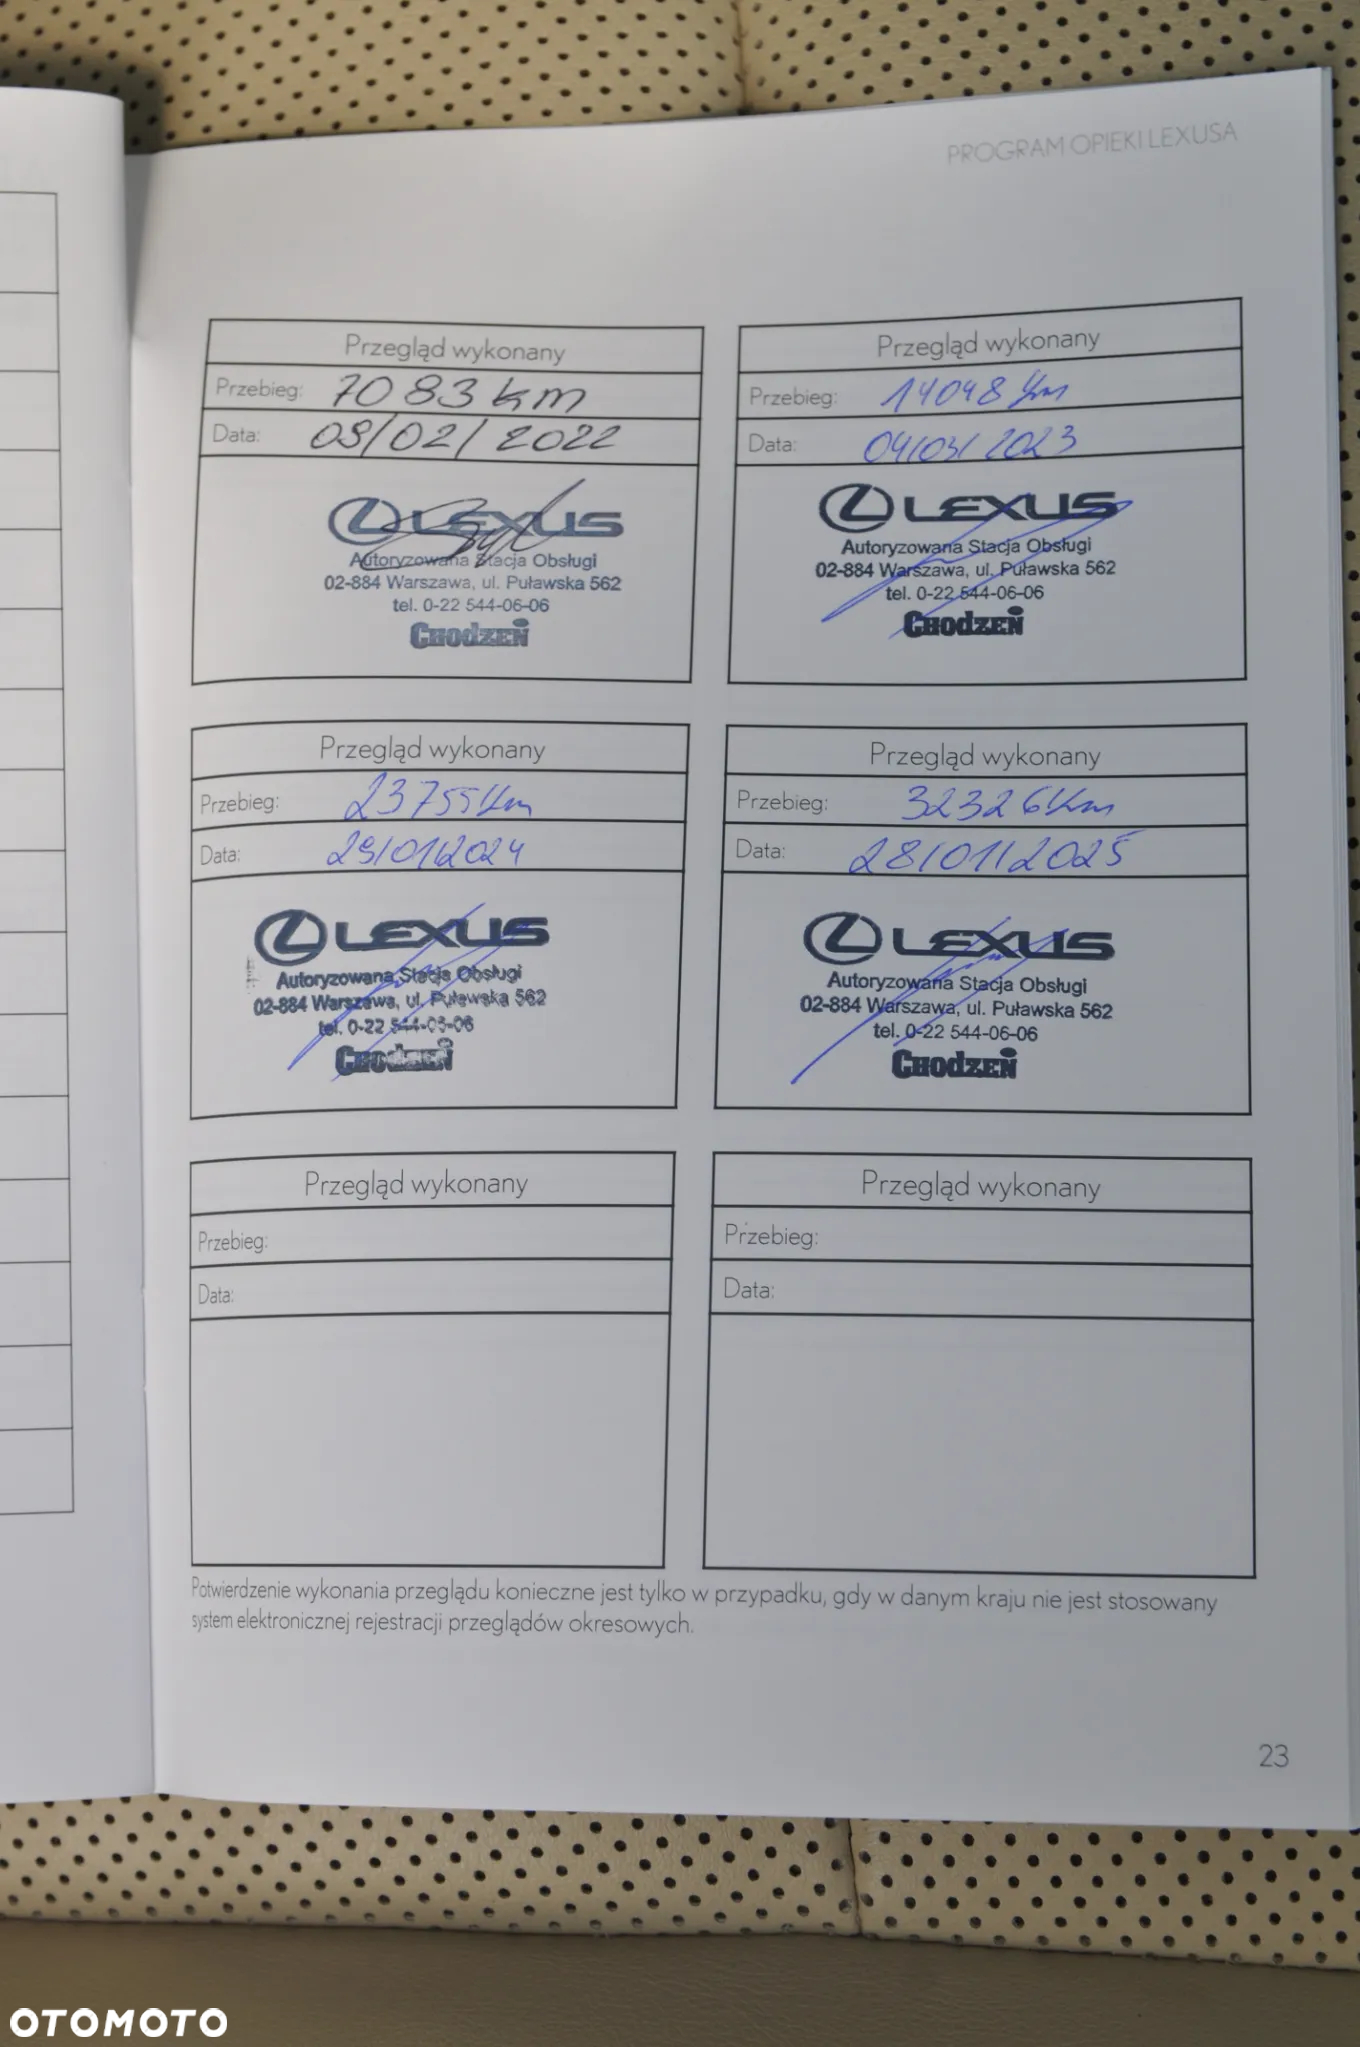 PROGRAM OPIEKI LEXUSA
Przegląd wykonany
Przebieg: 7083 km
Data: 09/02/2022
LEXUS
Autoryzowana Stacja Obsługi
02-884 Warszawa, ul. Puławska 562
tel. 0-22 544-06-06
CHODZEŃ
Przegląd wykonany
Przebieg: 14048 km
Data: 04/03/2023
LEXUS
Autoryzowana Stacja Obsługi
02-884 Warszawa, ul. Puławska 562
tel. 0-22 544-06-06
CHODZEŃ
Przegląd wykonany
Przebieg: 23755 km
Data: 29/01/2024
LEXUS
Autoryzowana Stacja Obsługi
02-884 Warszawa, ul. Puławska 562
tel. 0-22 544-06-06
CHODZEŃ
Przegląd wykonany
Przebieg: 32326 km
Data: 28/01/2025
LEXUS
Autoryzowana Stacja Obsługi
02-884 Warszawa, ul. Puławska 562
tel. 0-22 544-06-06
CHODZEŃ
Przegląd wykonany
Przebieg:
Data:
Przegląd wykonany
Przebieg:
Data:
Potwierdzenie wykonania przeglądu konieczne jest tylko w przypadku, gdy w danym kraju nie jest stosowany
system elektronicznej rejestracji przeglądów okresowych.
23
OTOMOTO